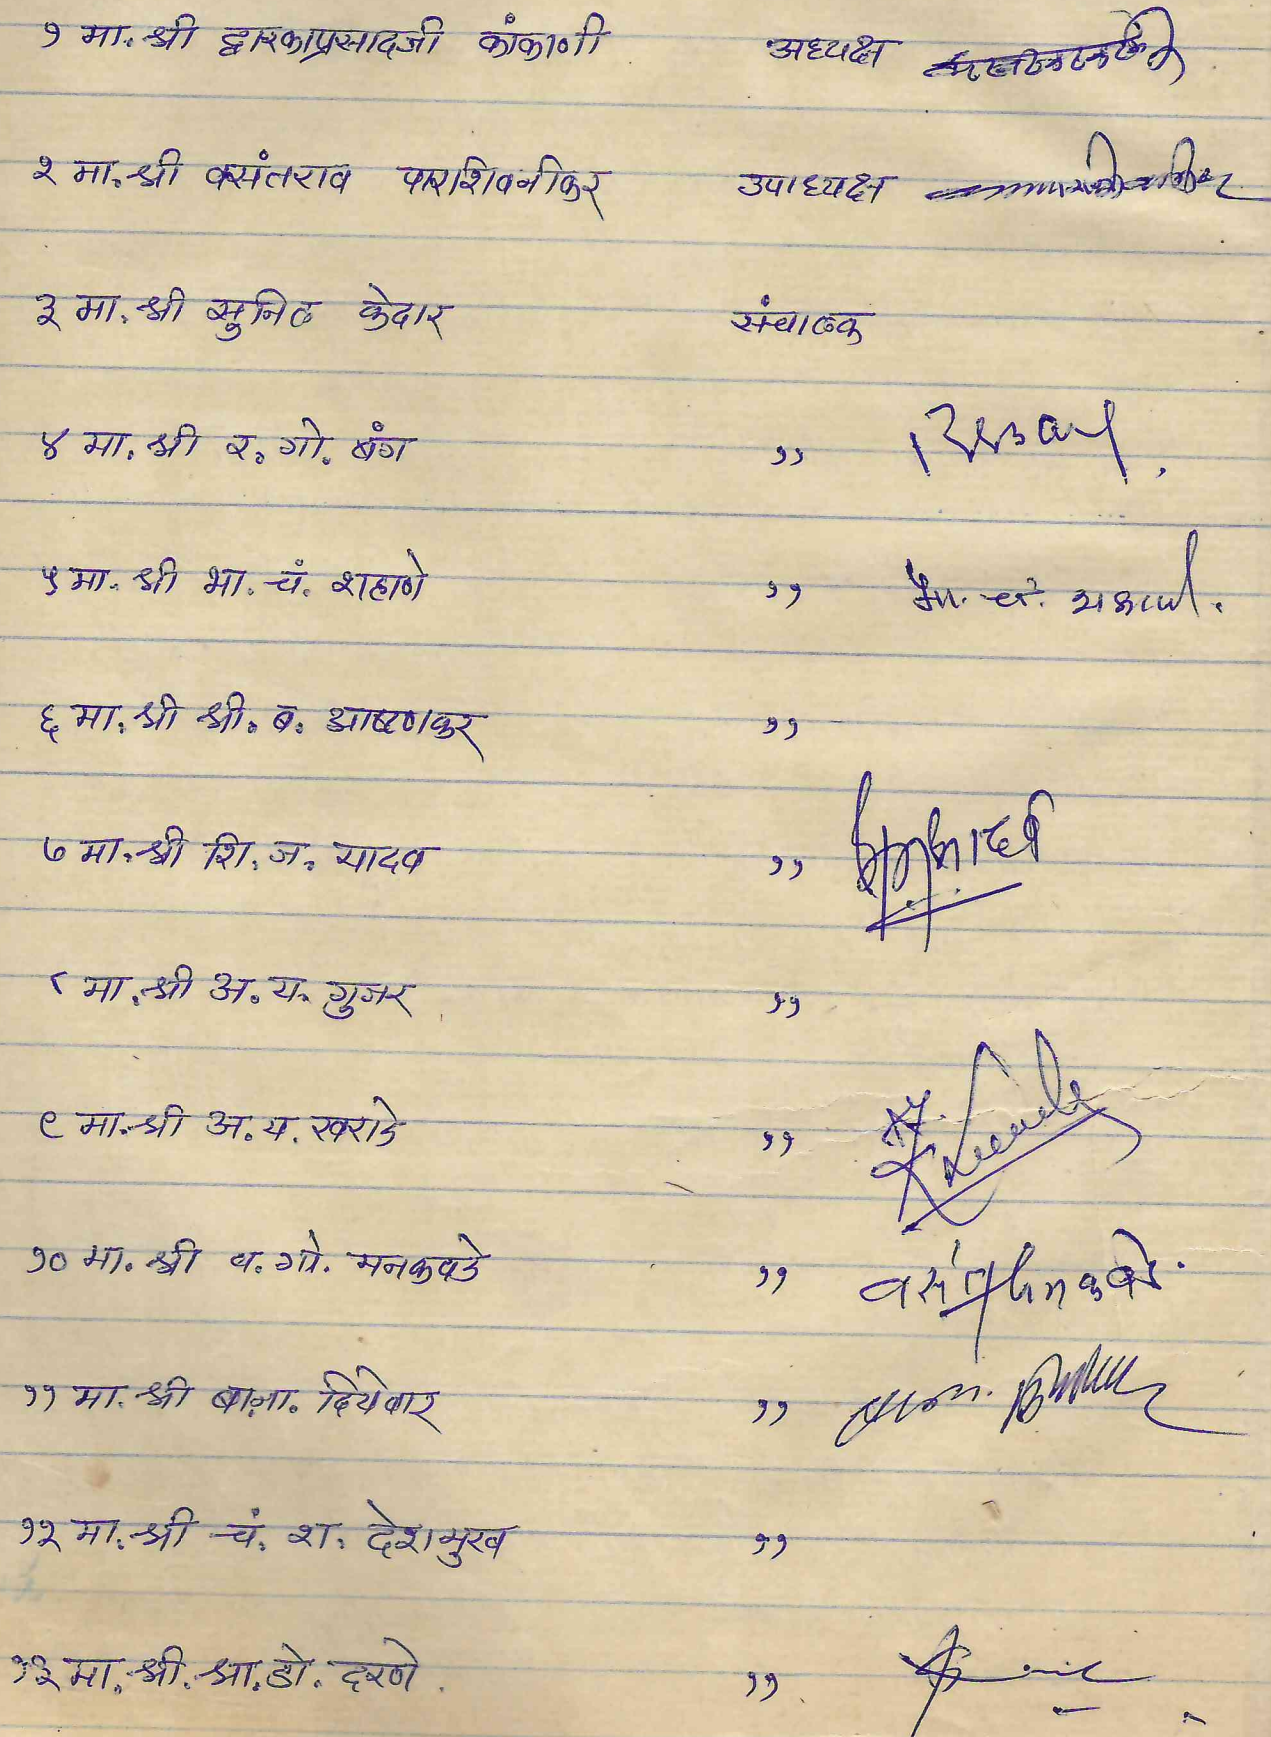 १ मा. श्री द्वारकाप्रसादजी कांकाणी अध्यक्ष
२ मा. श्री वसंतराव पाराशिवनीकर उपाध्यक्ष
३ मा. श्री सुनिल केदार संचालक
४ मा. श्री र. गो. बंग ,,
५ मा. श्री भा. चं. शहाणे ,, भा. चं. शहाणे.
६ मा. श्री श्री. ब. आष्टणकर ,,
७ मा. श्री शि. ज. यादव ,,
८ मा. श्री अ. य. गुजर ,,
९ मा. श्री अ. य. खराडे ,,
१० मा. श्री व. गो. मनकवडे ,,
११ मा. श्री बा. ना. दियेवार ,,
१२ मा. श्री चं. श. देशमुख ,,
१३ मा. श्री. श्रा. डो. दरणे ,,